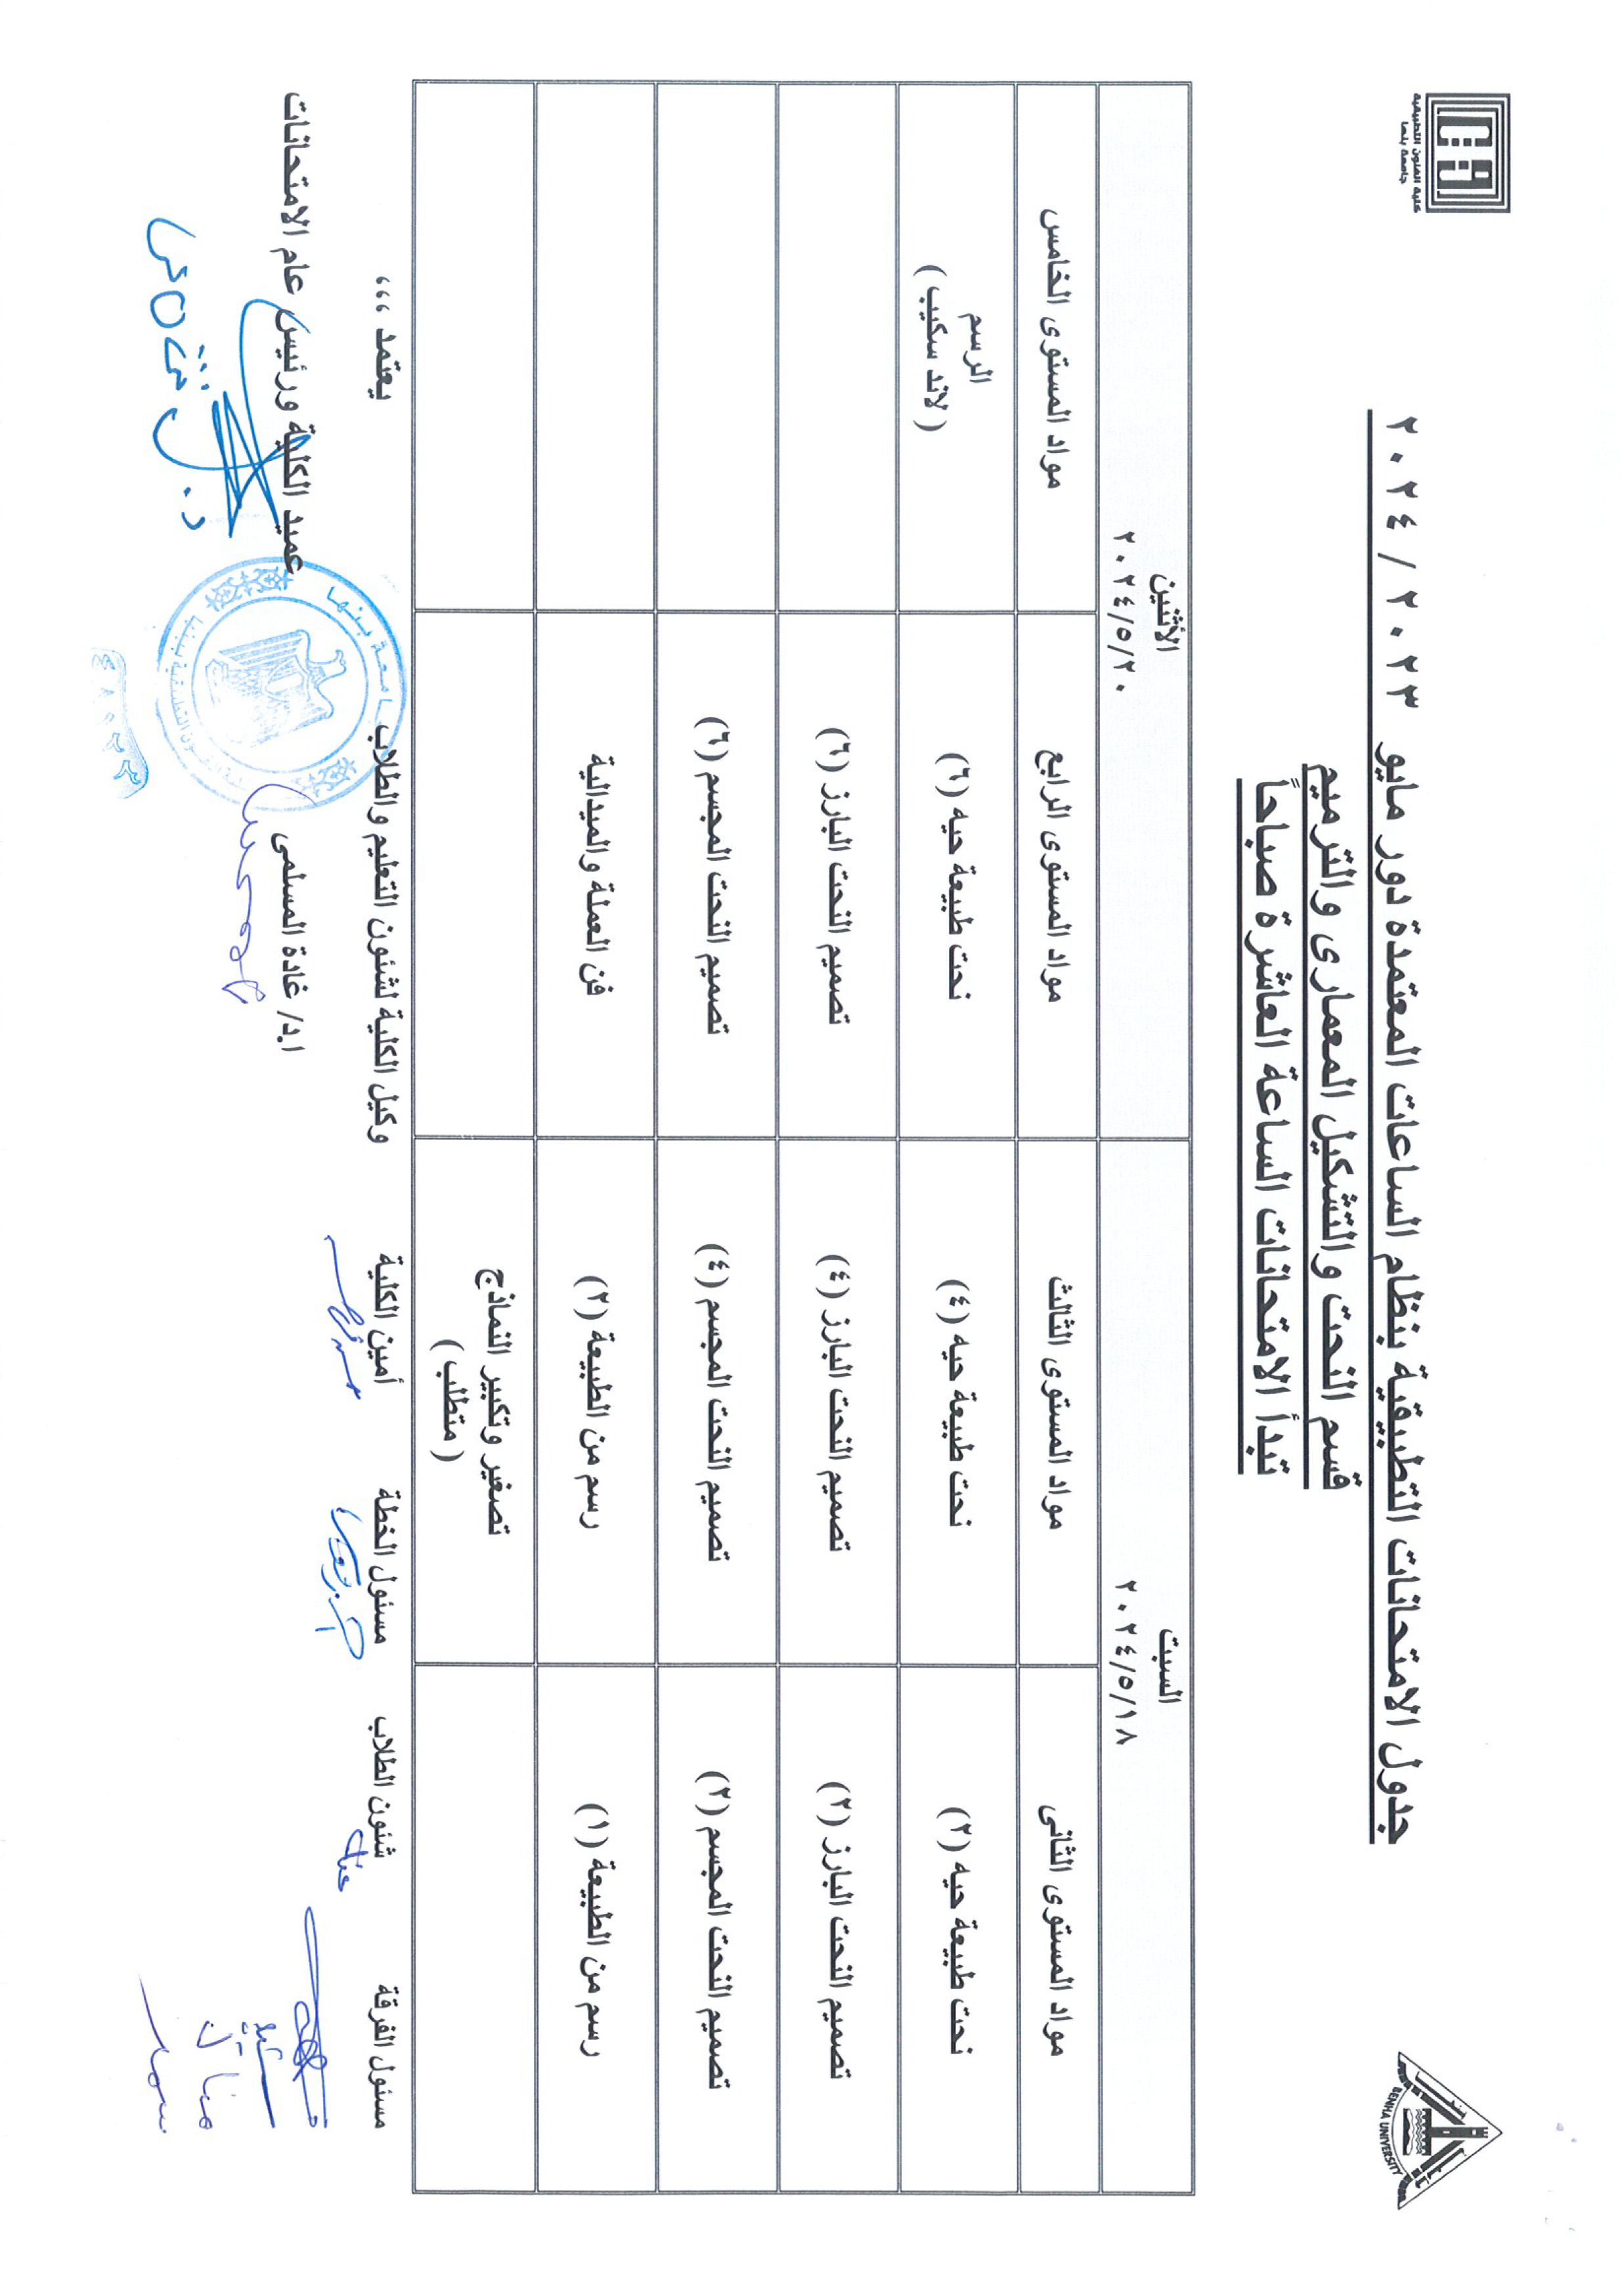 كلية الفنون التطبيقية
جامعة بنها
BENHA UNIVERSITY
جدول الامتحانات التطبيقية بنظام الساعات المعتمدة دور مايو ٢٠٢٣ / ٢٠٢٤
قسم النحت والتشكيل المعمارى والترميم
تبدأ الامتحانات الساعة العاشرة صباحاً
السبت
٢٠٢٤/٥/١٨
الأثنين
٢٠٢٤/٥/٢٠
مواد المستوى الثانى
مواد المستوى الثالث
مواد المستوى الرابع
مواد المستوى الخامس
نحت طبيعة حيه (٢)
نحت طبيعة حيه (٤)
نحت طبيعة حيه (٦)
الرسم
( لاند سكيب )
تصميم النحت البارز (٢)
تصميم النحت البارز (٤)
تصميم النحت البارز (٦)
تصميم النحت المجسم (٢)
تصميم النحت المجسم (٤)
تصميم النحت المجسم (٦)
رسم من الطبيعة (١)
رسم من الطبيعة (٢)
فن العملة والميدالية
تصغير وتكبير النماذج
( متطلب )
مسئول الفرقة
شئون الطلاب
مسئول الخطة
أمين الكلية
وكيل الكلية لشئون التعليم والطلاب
يعتمد ،،،
ا.د/ غادة المسلمى
عميد الكلية ورئيس عام الامتحانات